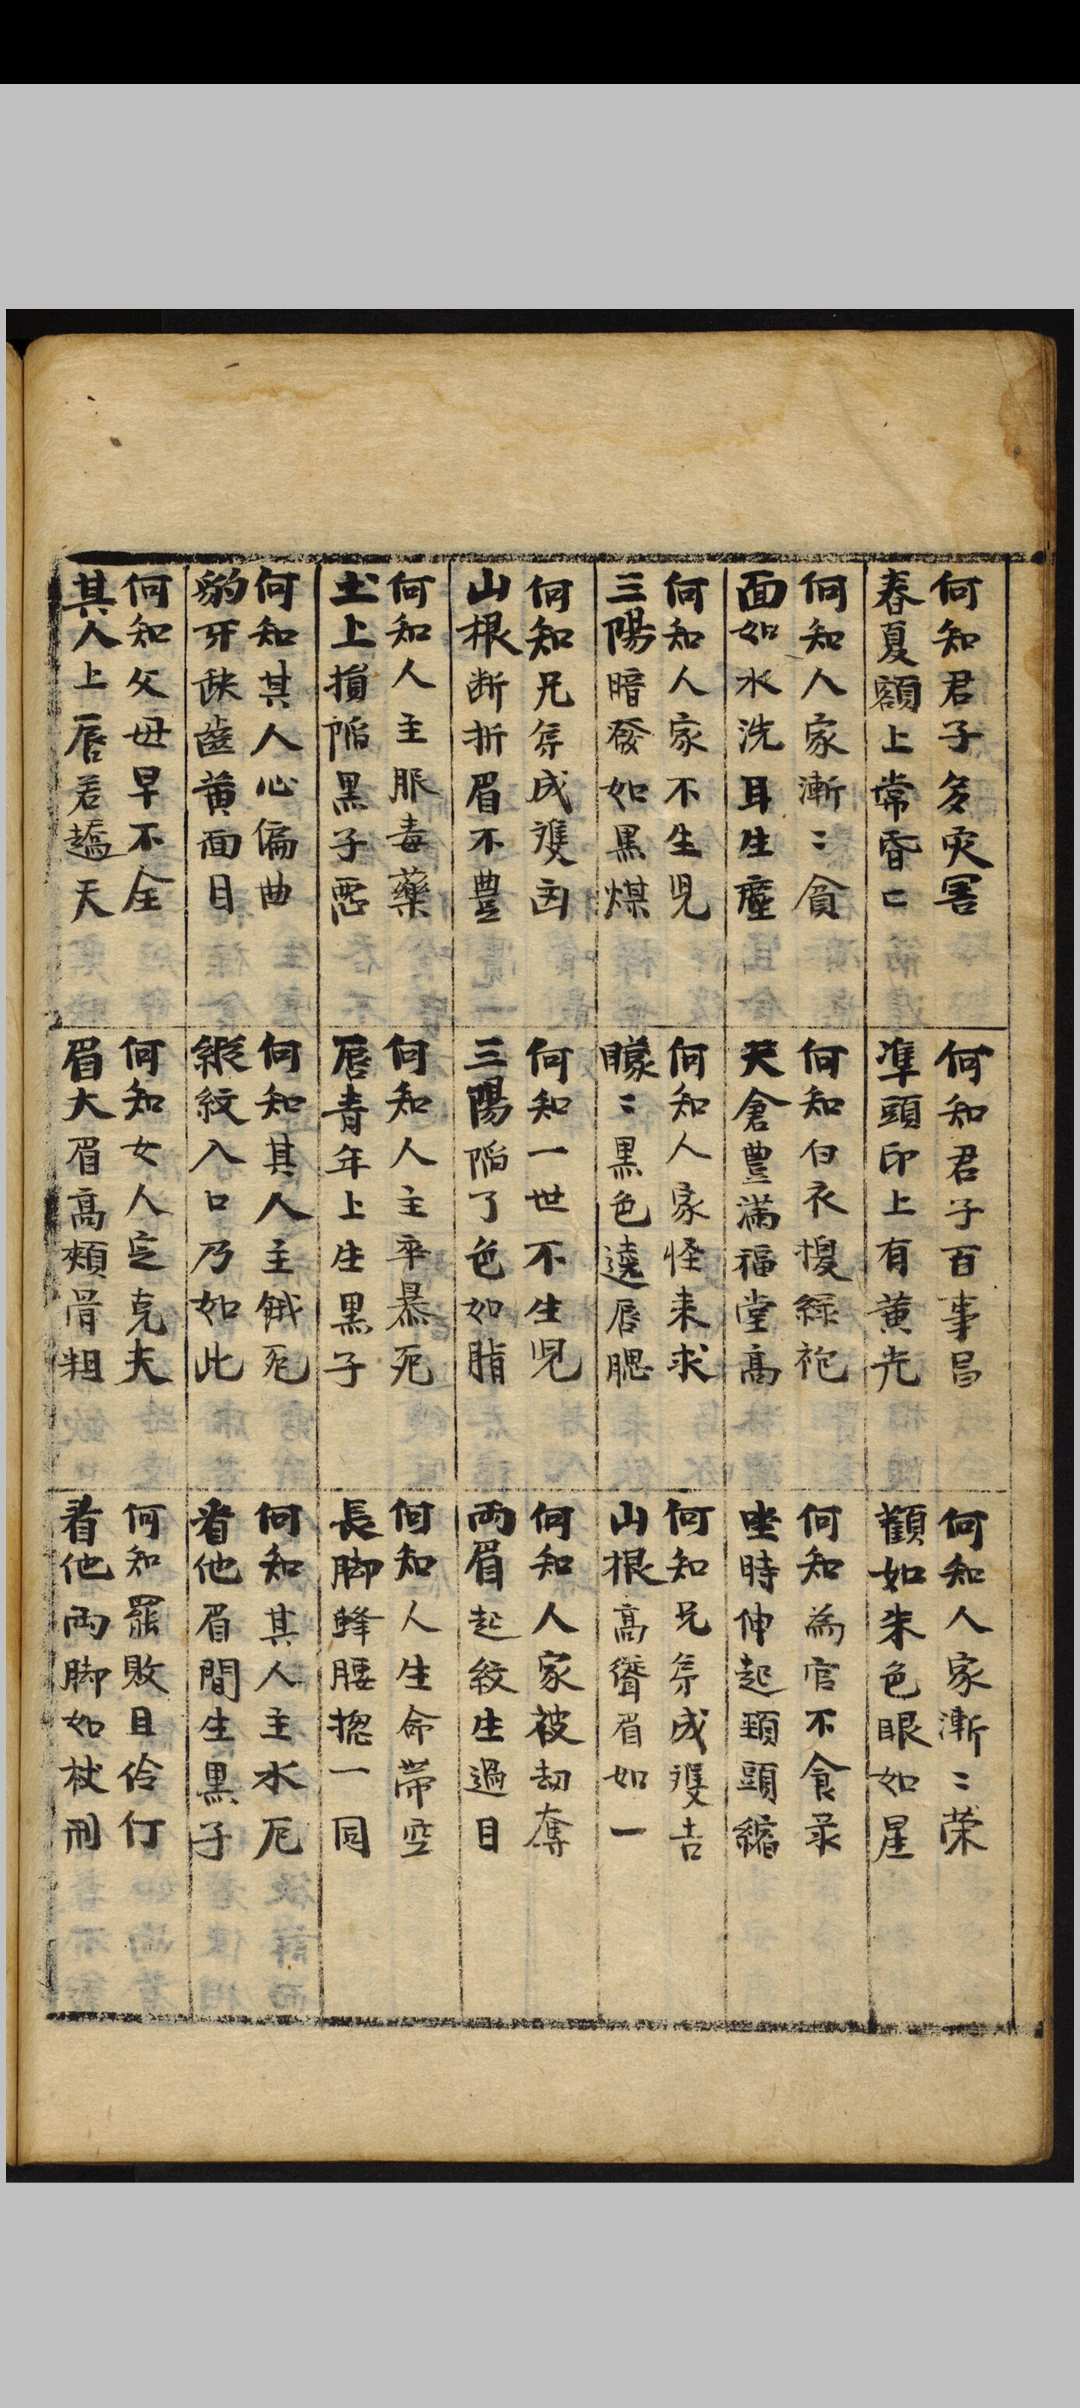 何知君子多灾害
春夏額上常昏亡
何知君子百事昌
凖頭印上有黄光
何知人家漸〻荣
顴如朱色眼如星
何知人家漸〻貧
面如水洗耳生塵
何知白衣換緑袍
天倉豊滿福堂高
何知為官不食录
坐時伸起頸頭縮
何知人家不生児
三陽暗發如黒煤
何知人家怪来求
朦〻黒色遶唇腮
何知兄弟成𨾏吉
山根高聳眉如一
何知兄弟成𨾏凶
山根断折眉不豊
何知一世不生児
三陽陷了色如脂
何知人家被劫奪
両眉起紋生過目
何知人主服毒藥
土上損陷黒子惡
何知人主卒暴死
唇青年上生黒子
何知人生命帶空
長脚蜂腰揔一同
何知其人心偏曲
豹牙缺齒黄面目
何知其人主餓死
縱紋入口乃如此
何知其人主水厄
看他眉間生黒子
何知父毋早不全
其人上唇若趫天
何知女人㝎克夫
眉大眉高頰骨粗
何知罷敗且伶仃
看他両脚如杖刑